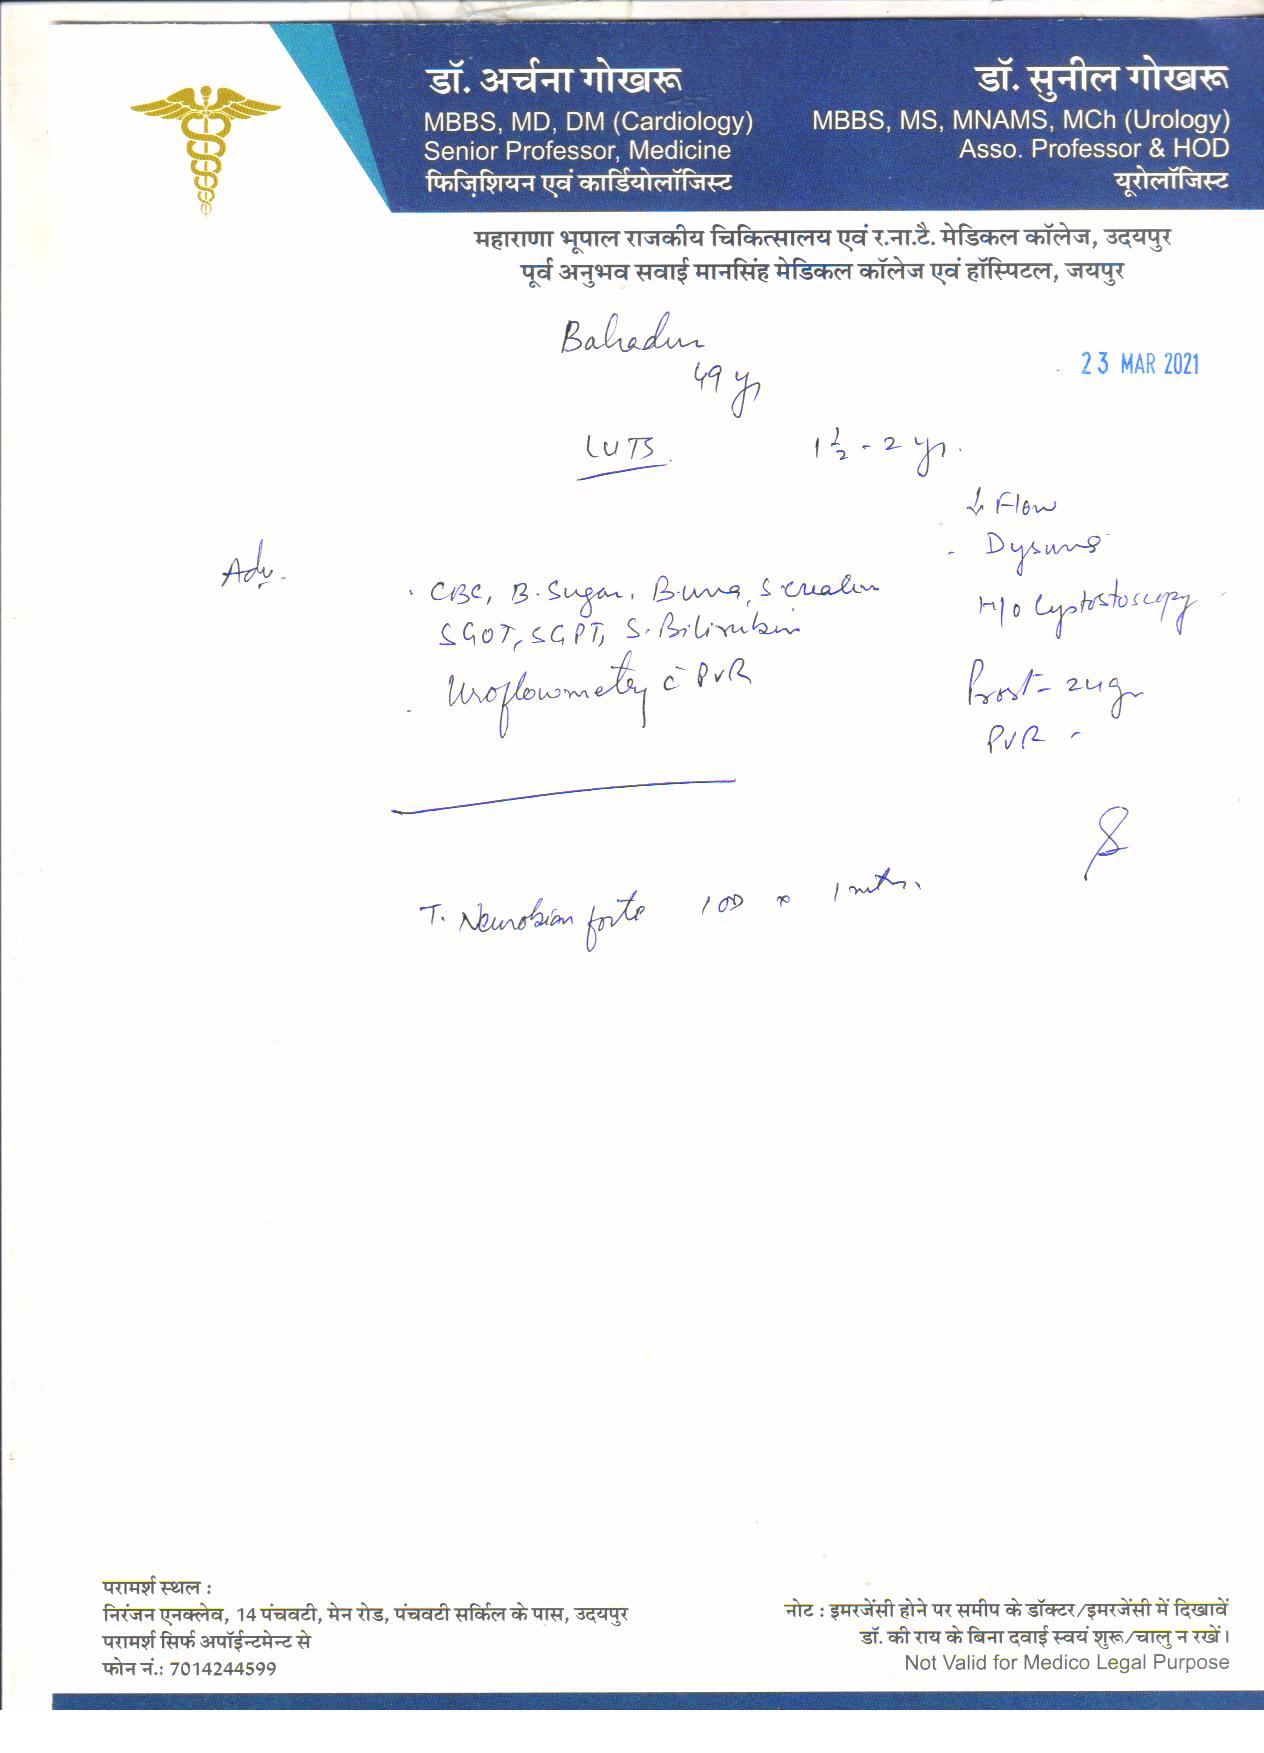 डॉ. अर्चना गोखरू
MBBS, MD, DM (Cardiology)
Senior Professor, Medicine
फिज़िशियन एवं कार्डियोलॉजिस्ट
डॉ. सुनील गोखरू
MBBS, MS, MNAMS, MCh (Urology)
Asso. Professor & HOD
यूरोलॉजिस्ट
महाराणा भूपाल राजकीय चिकित्सालय एवं र.ना.टै. मेडिकल कॉलेज, उदयपुर
पूर्व अनुभव सवाई मानसिंह मेडिकल कॉलेज एवं हॉस्पिटल, जयपुर
Bahadur
49 yr
23 MAR 2021
LUTS 1 1/2 - 2 yr.
↓ Flow
- Dysuria
H/o Cystostoscopy
Prost - 24 gm
PVR -
Adv.
. CBC, B. Sugar, B. urea, S creatin
SGOT, SGPT, S. Bilirubin
. Uroflowmetry c̄ PVR
T. Neurobion forte 1 OD x 1 mth.
परामर्श स्थल :
निरंजन एनक्लेव, 14 पंचवटी, मेन रोड, पंचवटी सर्किल के पास, उदयपुर
परामर्श सिर्फ अपॉईन्टमेन्ट से
फोन नं.: 7014244599
नोट : इमरजेंसी होने पर समीप के डॉक्टर/इमरजेंसी में दिखावें
डॉ. की राय के बिना दवाई स्वयं शुरू/चालु न रखें।
Not Valid for Medico Legal Purpose